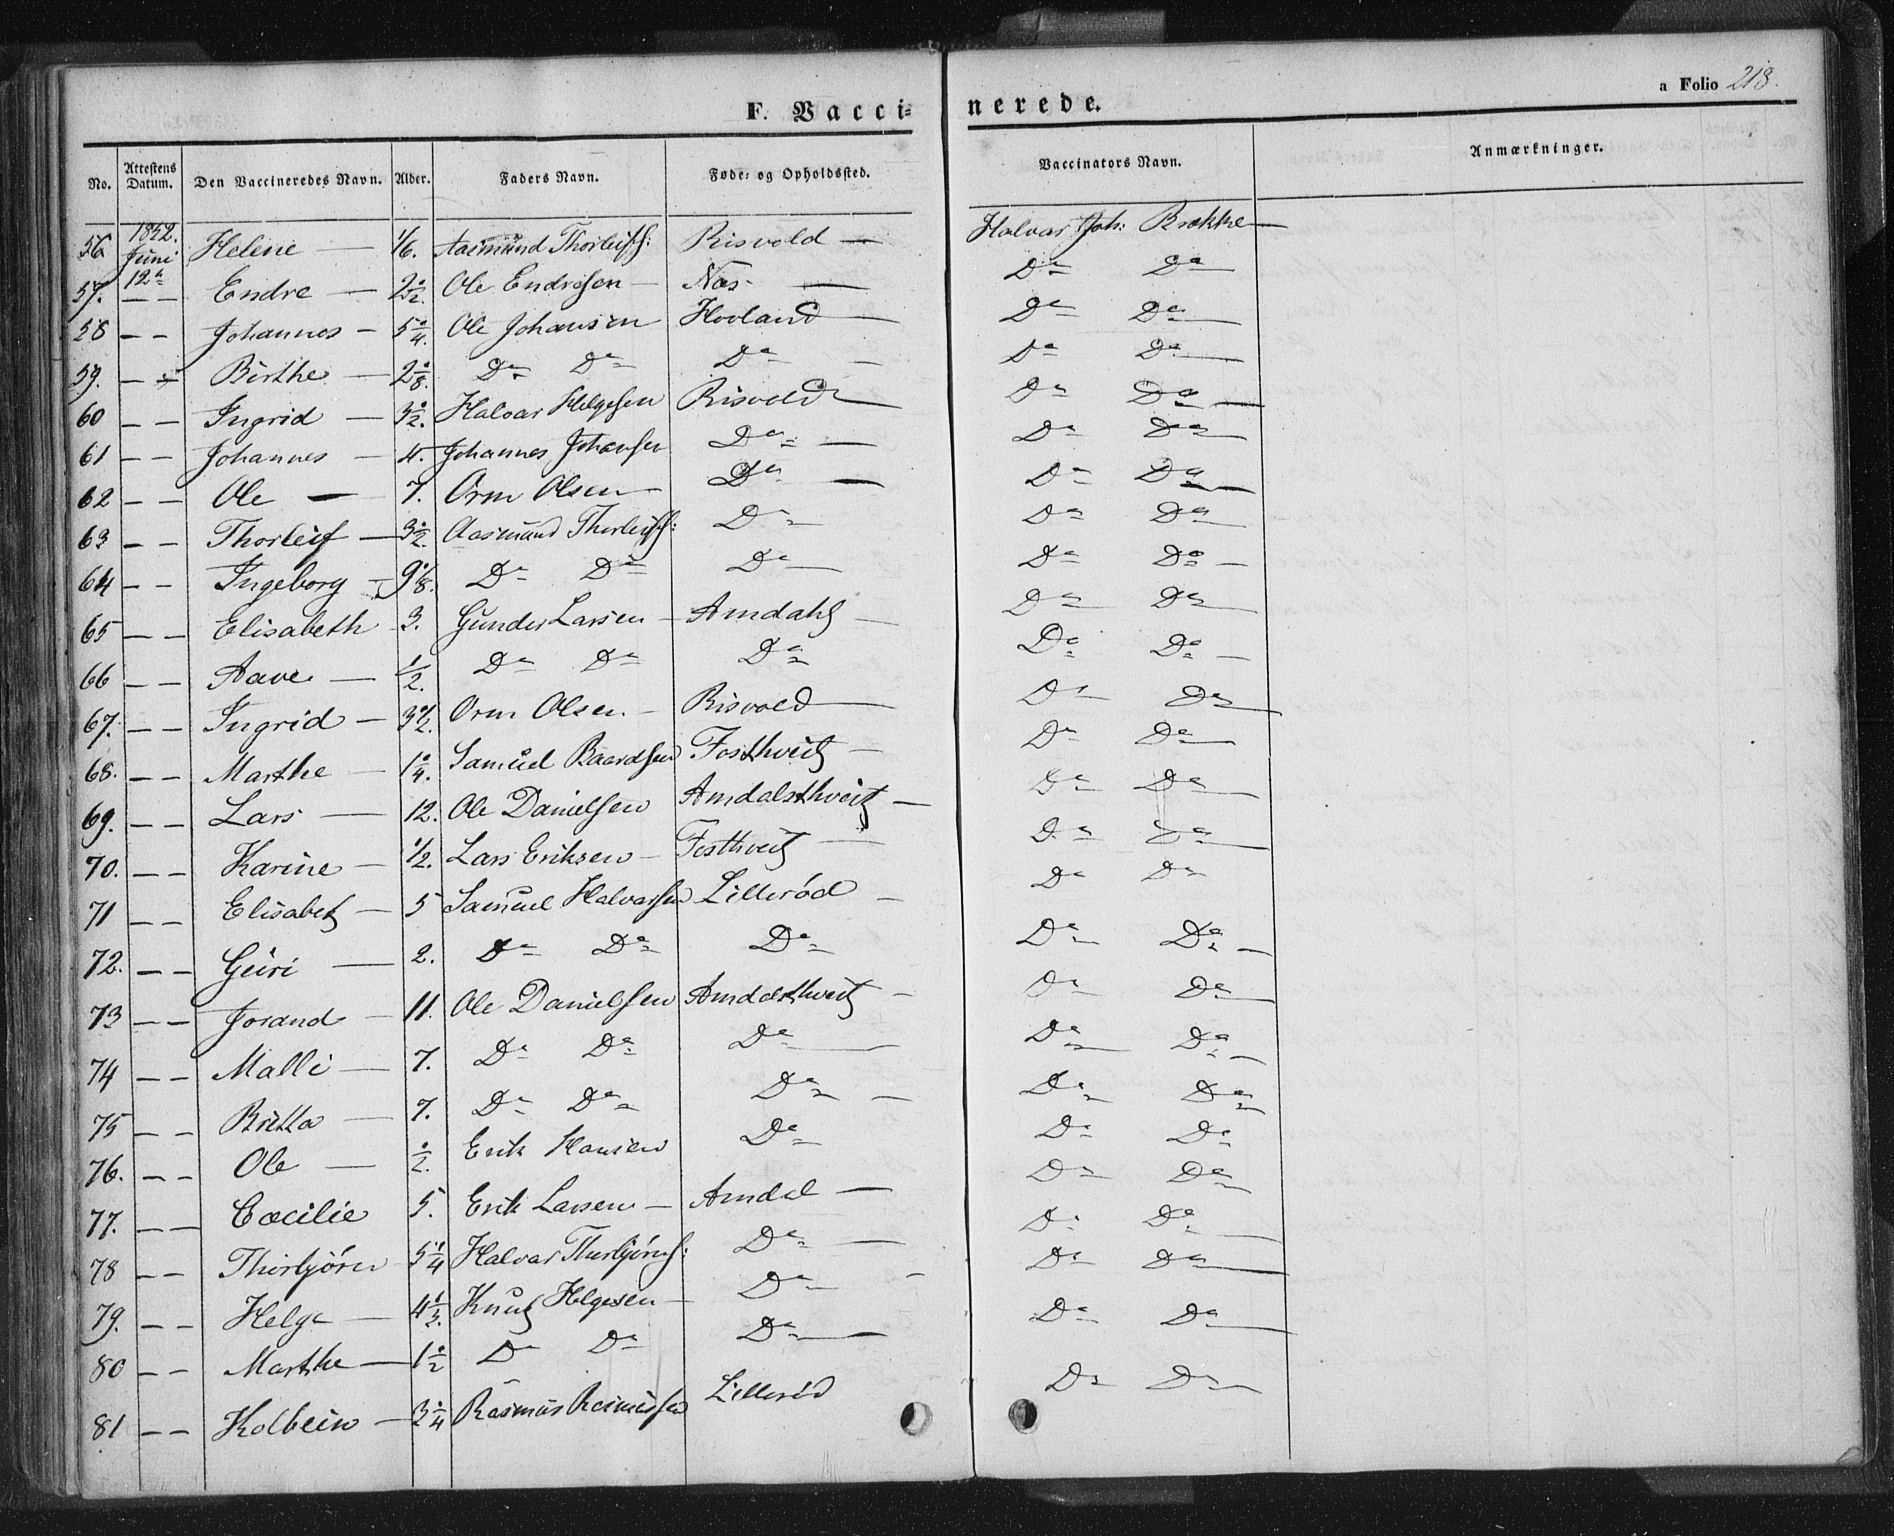 F. Vaccinerede.
a Folio 218.
No. Attestens Datum. Den Vaccineredes Navn. Alder. Faders Navn. Føde- og Opholdssted. Vaccinators Navn. Anmærkninger.
56 1842. Juni 12te Helene — 1/6. Aasmund Thorleifs: Risvold — Halvar Joh: Brekke —
57. — — Endre — 2 1/2. Ole Endresen — Næs — Do Do
58 — — Johannes — 5 1/4. Ole Johansen Hovland — Do Do —
59. — — Birthe — 2 1/8. Do Do Do — Do Do —
60 — — Ingrid — 3 1/2. Halvar Helgesen Risvold — Do Do —
61 — — Johannes — 4. Johannes Johansen Do — Do Do —
62 — — Ole — 7. Orm Olsen — Do — Do Do —
63 — — Thorleif — 3 1/2. Aasmund Thorleifs: Do Do Do —
64 — — Ingeborg — 9 1/8. Do Do Do — Do Do —
65 — — Elisabeth 3. Gunder Larsen — Amdahl — Do Do —
66 — — Aave — 1/2. Do Do Do Do Do —
67. — — Ingrid — 3 1/2. Orm Olsen — Risvold — Do Do —
68. — — Marthe — 1 1/4. Samuel Baardsen Fosthveit — Do Do —
69. — — Lars — 12. Ole Danielsen Amdalsthveit — Do Do —
70. — — Karine — 1/2. Lars Eriksen — Fosthveit — Do Do —
71 — — Elisabet — 5 Samuel Halvorsen Lillerød — Do Do
72. — — Geiri — 2. Do Do Do Do Do —
73 — — Jorand — 11. Ole Danielsen Amdalsthveit — Do Do —
74 — — Malli — 7. Do Do Do — Do Do —
75 — — Britta — 7. Do Do Do — Do Do
76. — — Ole — 1/2. Erik Hansen Do Do Do
77. — — Cæcilie 5. Erik Larsen — Amdal — Do Do —
78 — — Thorbjörn 5 1/4 Halvar Thorbjörns: Do — Do Do
79. — — Helge — 4 1/3. Knut Helgesen — Do — Do Do —
80 — — Marthe — 1 1/2 Do Do Do — Do Do —
81 — — Kolbein — 3 1/4 Rasmus Rasmussen Lillerød Do Do —